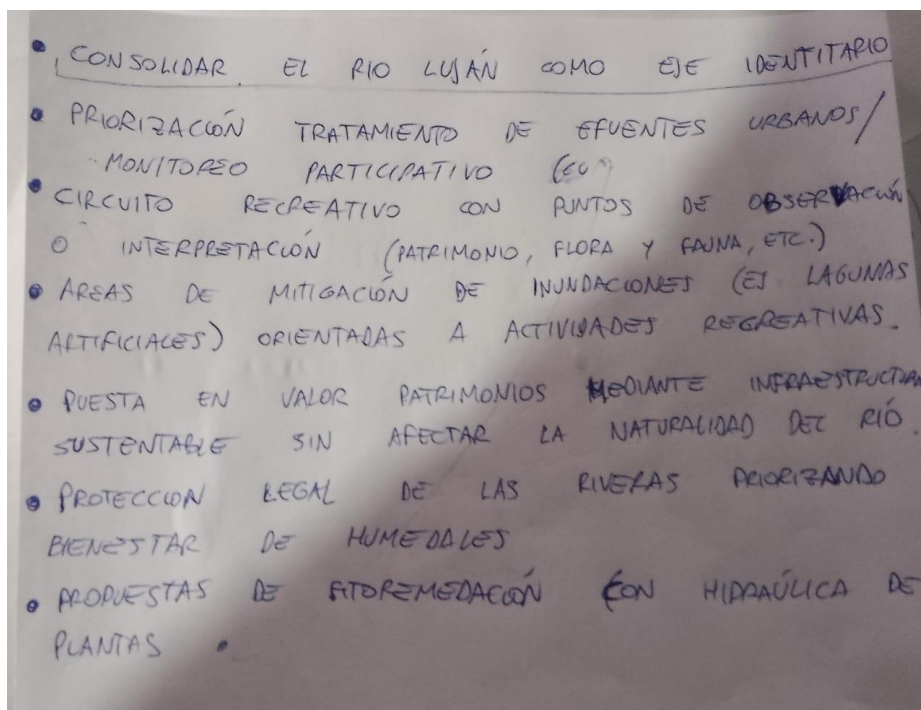 • CONSOLIDAR EL RIO LUJÁN COMO EJE IDENTITARIO
• PRIORIZACIÓN TRATAMIENTO DE EFUENTES URBANOS/
MONITOREO PARTICIPATIVO
• CIRCUITO RECREATIVO CON PUNTOS DE OBSERVACIÓN
O INTERPRETACIÓN (PATRIMONIO, FLORA Y FAUNA, ETC.)
• AREAS DE MITIGACIÓN DE INUNDACIONES (EJ LAGUNAS
ARTIFICIALES) ORIENTADAS A ACTIVIDADES RECREATIVAS.
• PUESTA EN VALOR PATRIMONIOS MEDIANTE INFRAESTRUCTURA
SUSTENTABLE SIN AFECTAR LA NATURALIDAD DEL RIÓ.
• PROTECCION LEGAL DE LAS RIVERAS PRIORIZANDO
BIENESTAR DE HUMEDALES
• PROPUESTAS DE FITOREMEDACIÓN CON HIDRAÚLICA DE
PLANTAS •